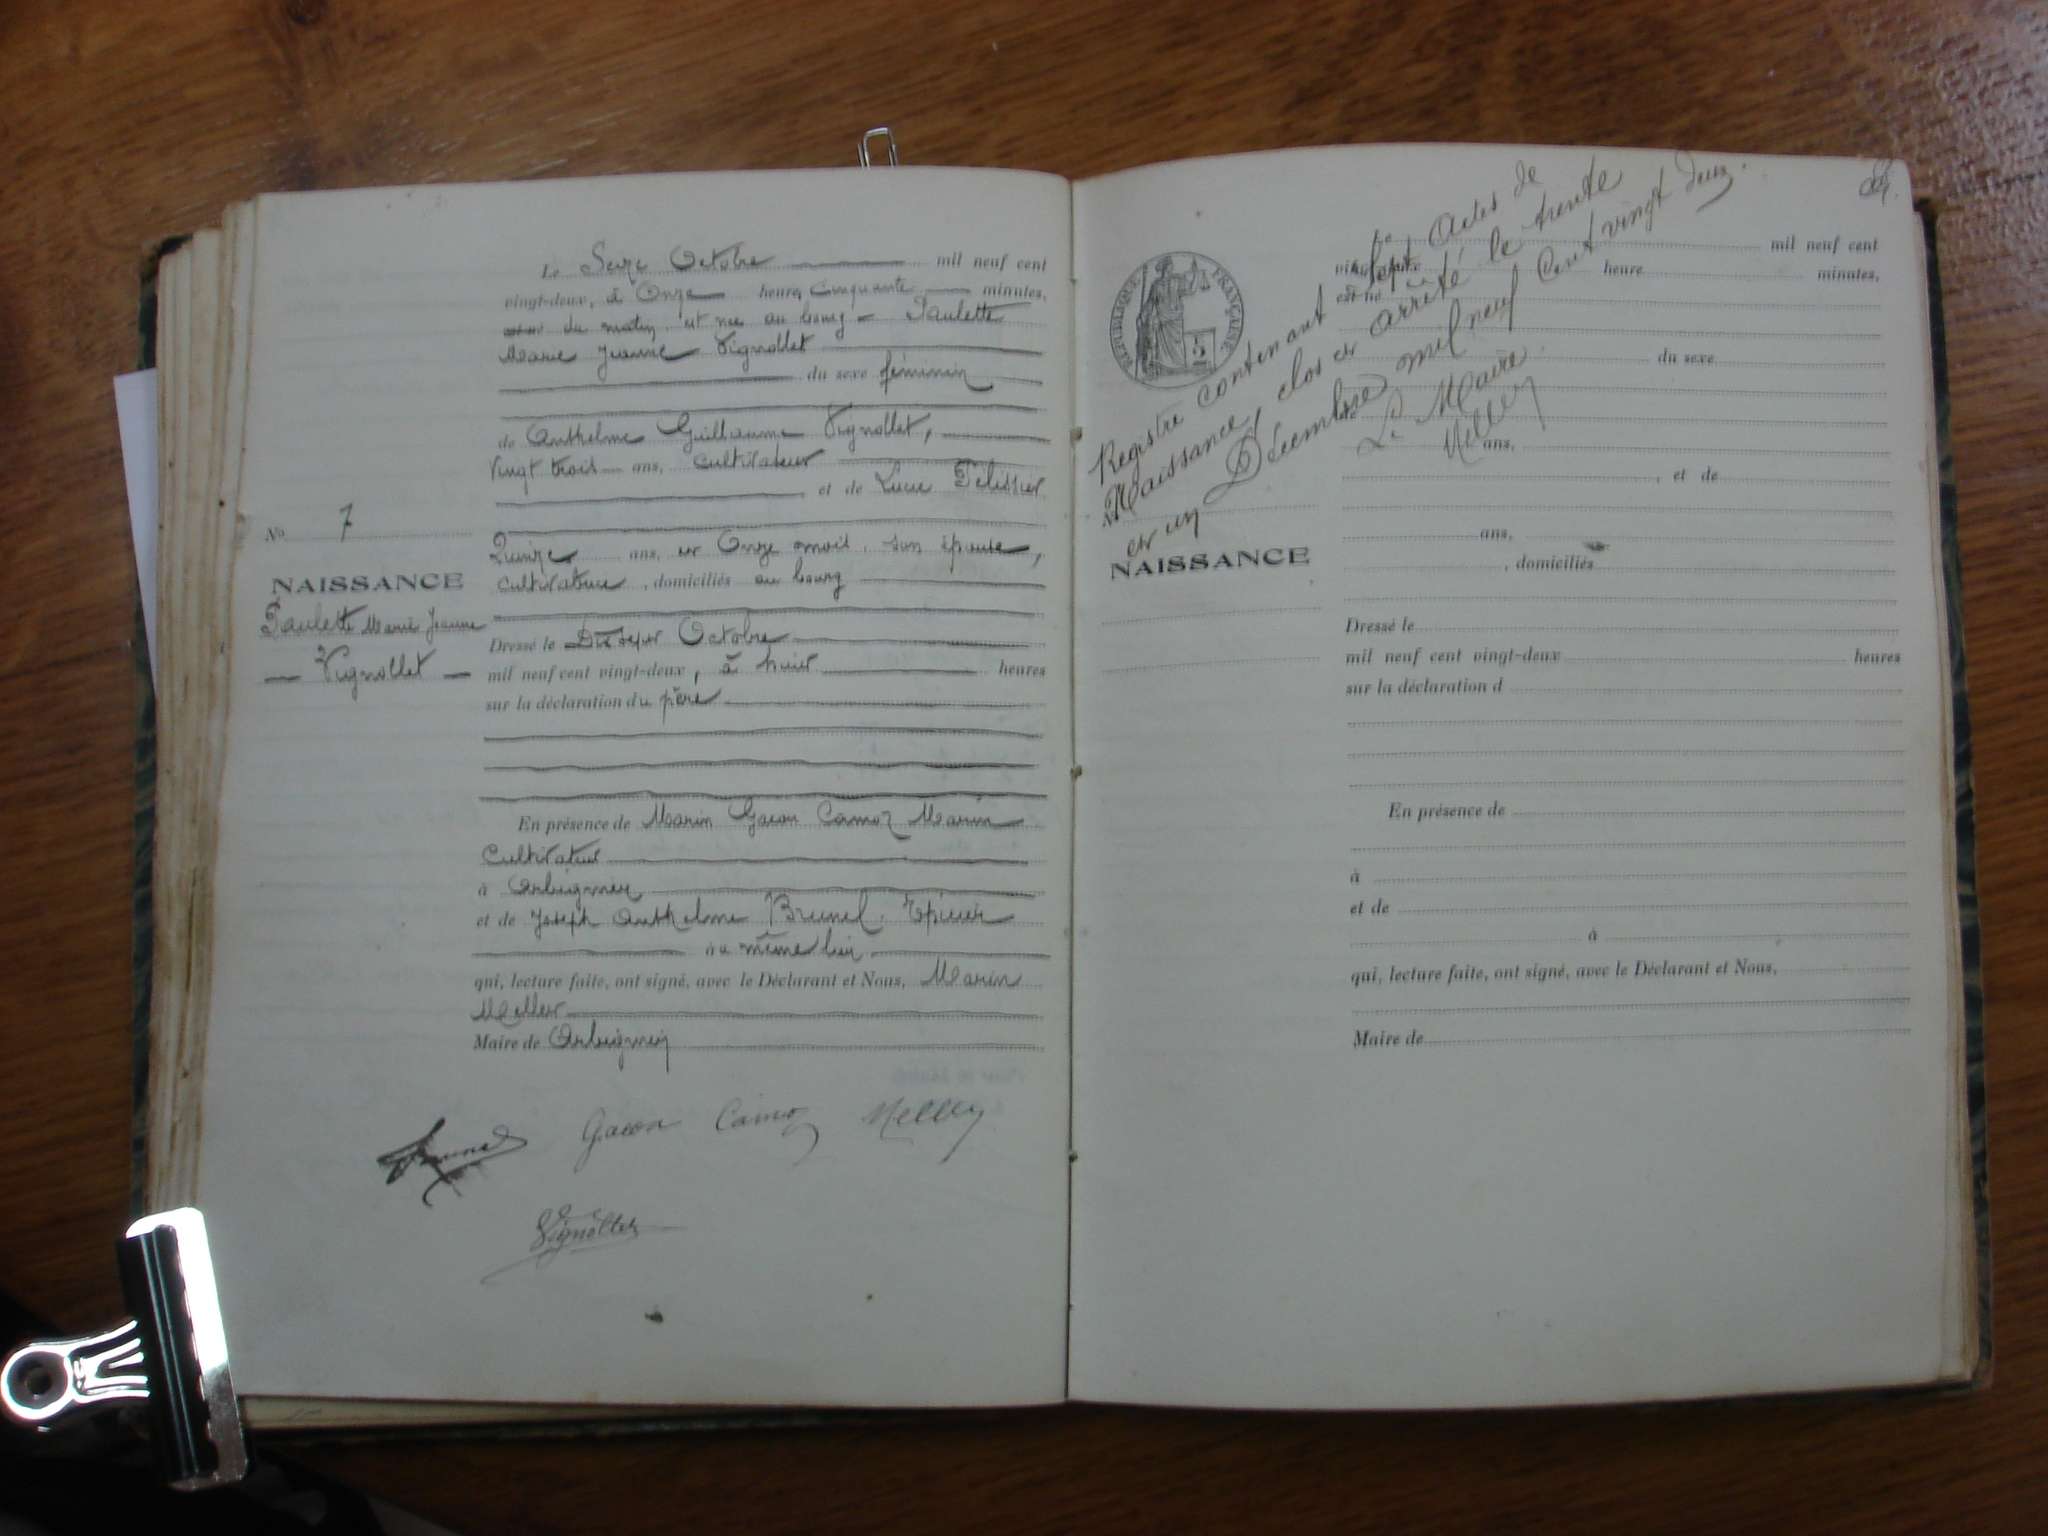 Le Seize Octobre mil neuf cent
vingt-deux, à Onze heures cinquante minutes,
du matin est née au bourg Paulette
Marie Jeanne Vignollet
du sexe féminin
de Anthelme Guillaume Vignollet,
Vingt trois ans, cultivateur
et de Lucie Pelissier
Quinze ans, et Onze mois, son épouse,
cultivatrice, domiciliés au bourg
No 7
NAISSANCE
Paulette Marie Jeanne
Vignollet
Dressé le Dix sept Octobre
mil neuf cent vingt-deux, à huit heures
sur la déclaration du père
En présence de Marin Gacon Camoz Marin
Cultivateur
à Arbignieu
et de Joseph Anthelme Brunel. Epicier
au même lieu
qui, lecture faite, ont signé, avec le Déclarant et Nous, Marin
Maire de Arbignieu
Brunel Gacon Camoz
Vignollet
RÉPUBLIQUE FRANÇAISE
5
Registre contenant sept actes de
Naissance, clos et arrêté le trente
et un Décembre mil neuf Cent vingt deux.
Le Maire
Le mil neuf cent
vingt-deux heure minutes,
est né
du sexe
ans,
, et de
ans,
, domiciliés
NAISSANCE
Dressé le
mil neuf cent vingt-deux heures
sur la déclaration d
En présence de
à
et de
à
qui, lecture faite, ont signé, avec le Déclarant et Nous,
Maire de